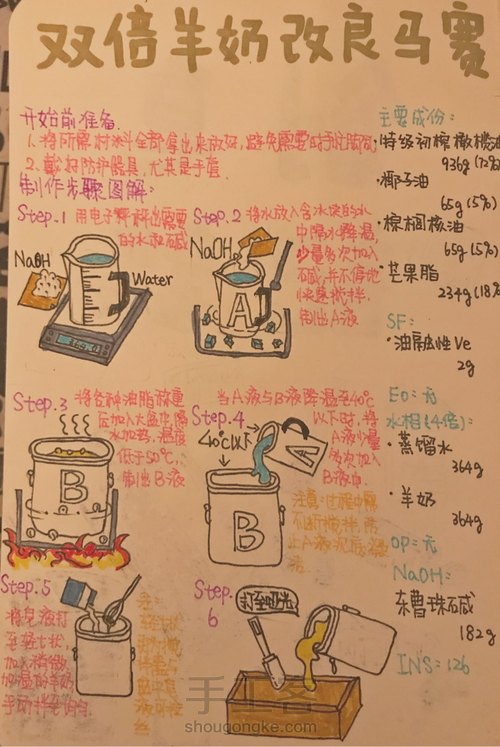 双倍羊奶改良马赛
开始前准备
1、将所需材料全部拿出来放好,避免需要时手忙脚乱
2、戴好防护器具,尤其是手套
制作步骤图解:
Step.1 用电子秤称出需要
的水和碱
NaOH
Water
Step.2 将水放入含冰块的水
中隔水降温,
少量多次加入
碱,并不停地
快速搅拌,
制出A液
NaOH
A
Step.3 将各种油脂称重
后加入大盆中,隔
水加热,温度
低于50℃,
制出B液
B
当A液与B液降温至40℃
Step.4 以下时,将
A液少量
多次加入
B液中.
40℃以下
A
B
注意:过程中需
不断搅拌,防
止A液
Step.5
将皂液打
至轻
加入稍微
加温的羊奶,
手动拌
Step.
6
打至
主要成份:
·特级初榨橄榄油
936g(72%)
·椰子油
65g(5%)
·棕榈核油
65g(5%)
·芒果脂
234g(18%
SF:
·油融性Ve
2g
Eo:无
水相(4倍):
·蒸馏水
364g
·羊奶
364g
OP:无
NaOH:
东曹珠碱
182g
INS:126
手工客
shougongke.com